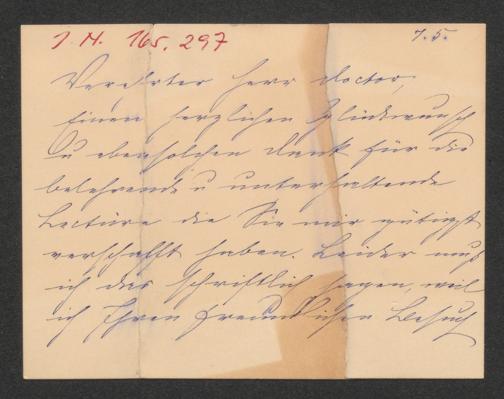 J. N. 165.297
7.5.
Verehrter Herr Doctor,
Einen herzlichen Glückwunsch
u ebensolchen Dank für die
belehrende u unterhaltende
Lectüre die Sie mir gütigst
verschafft haben. Leider muß
ich das schriftlich sagen, weil
ich Ihren freundlichen Besuch